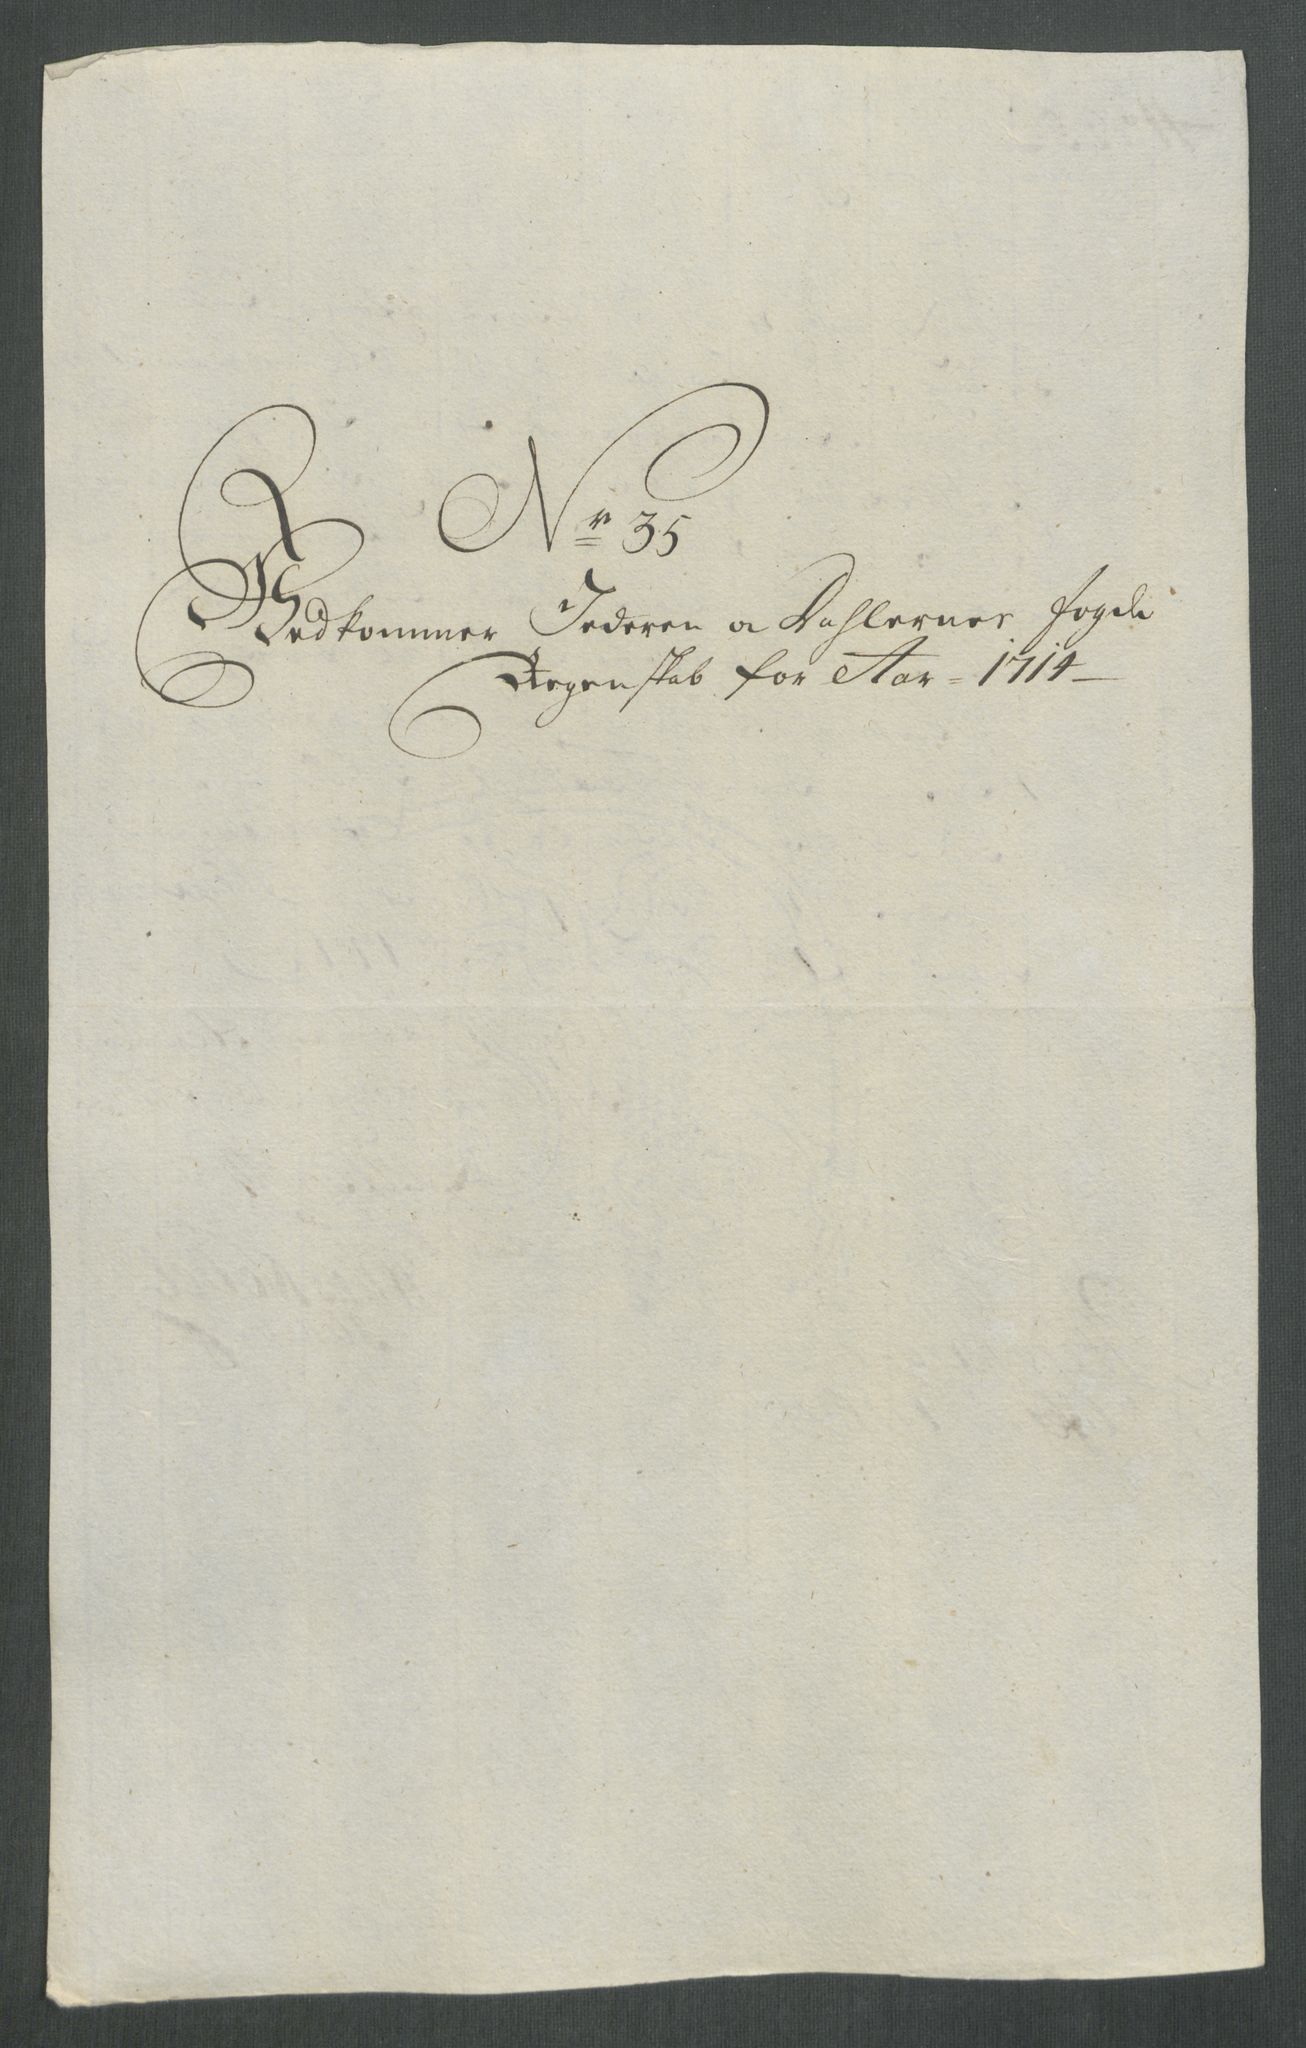 Nr 35
Vedkommer Jederen oc Dahlernes fogde
Regenskab for Aar 1714